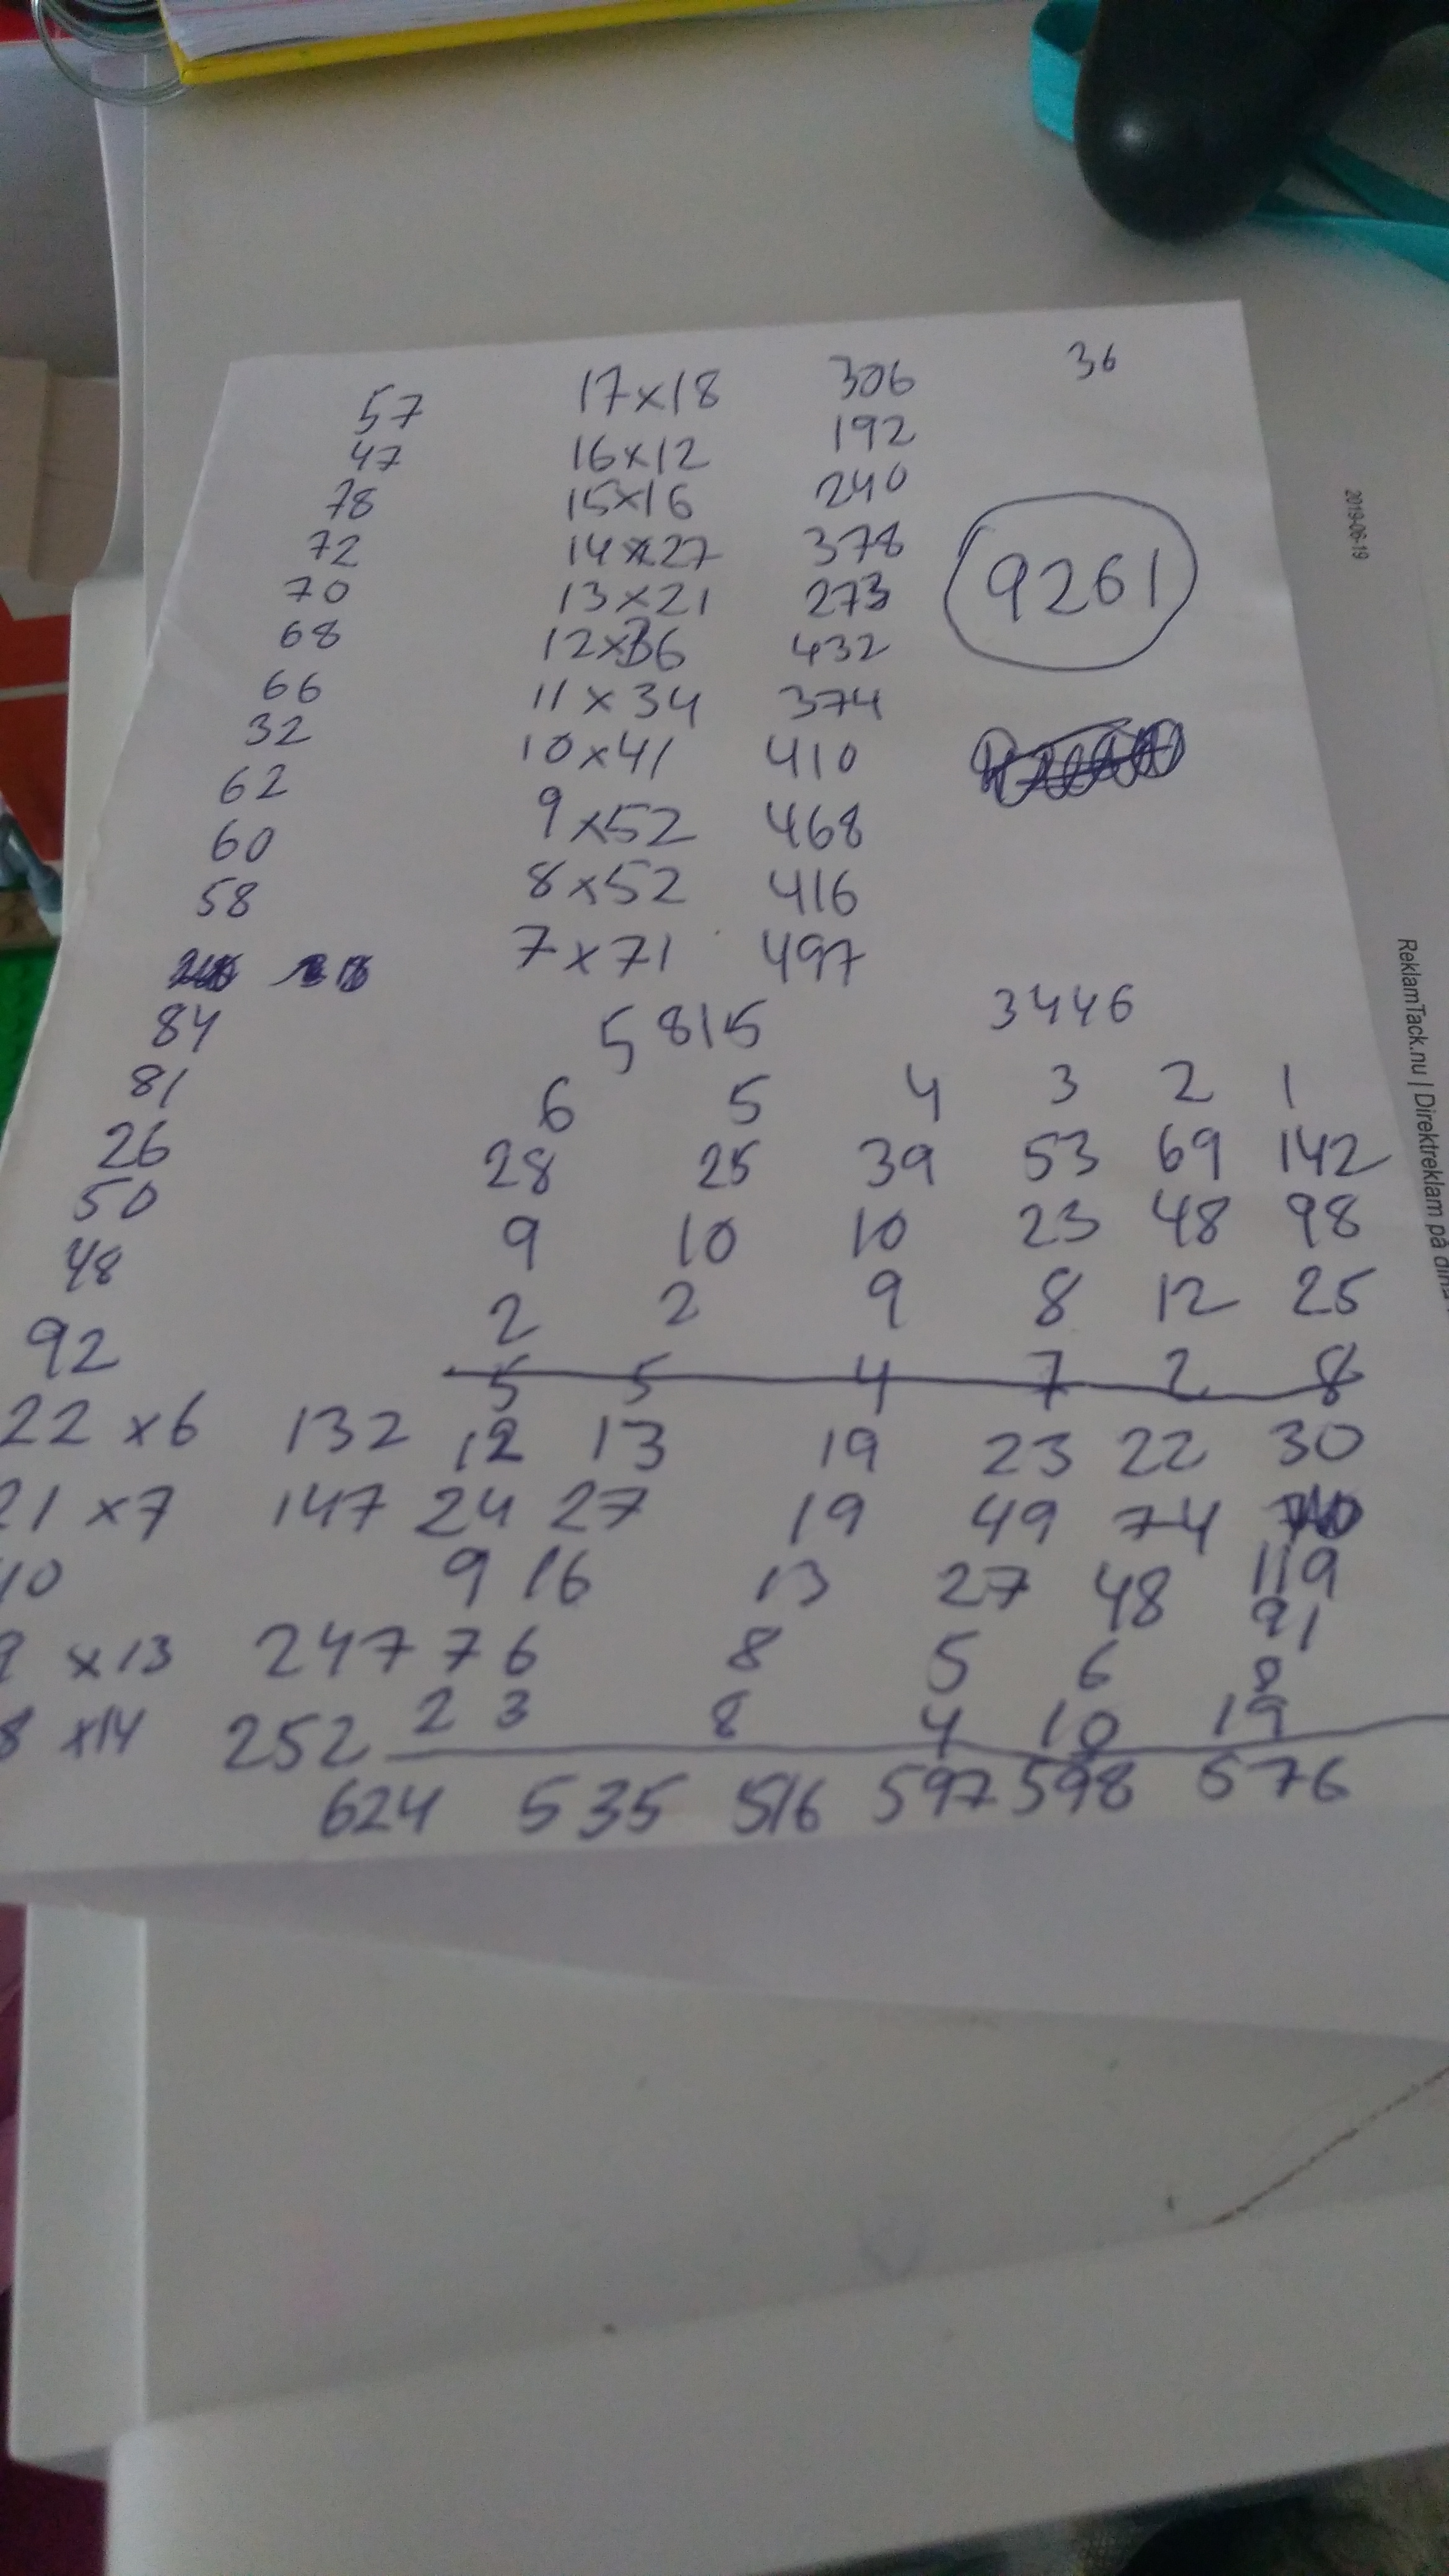 57 17x18 306 36
47 16x12 192
78 15x16 240
72 14x27 378
70 13x21 273
9261
68 12x36 432
66 11x34 374
32 10x41 410
62 9x52 468
60 8x52 416
58 7x71 497
84 5815 3446
81 6 5 4 3 2 1
26 28 25 39 53 69 142
50 9 10 10 23 48 98
48 2 2 9 8 12 25
92 5 5 4 7 2 8
22 x6 132 12 13 19 23 22 30
21 x7 147 24 27 19 49 74
9 16 13 27 48 119
x13 247 7 6 8 5 6 91
9
8 x14 252 2 3 8 4 10 19
624 535 516 597 598 576
2019-06-19
ReklamTack.nu | Direktreklam på